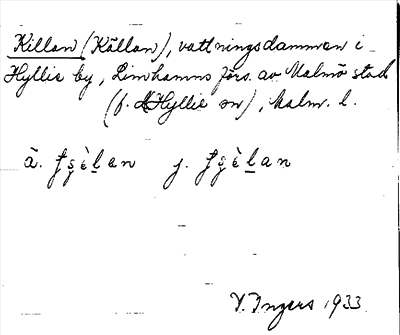 Killan (Källan), vattningsdammen i
Hyllie by, Limhamns förs. av Malmö stad
(f. Hyllie sn), Malm. l.
ä. ʈʂèlan y. ʈʂèlan
V. Ingers 1933.